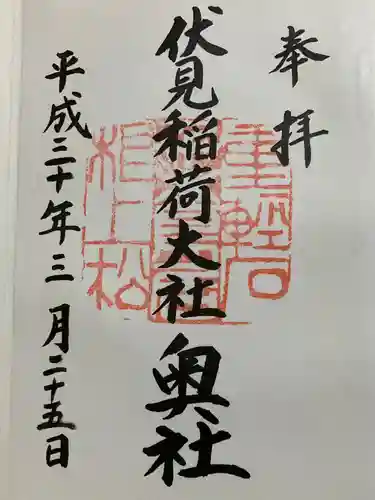 奉拝
伏見稲荷大社奥社
平成三十年三月二十五日